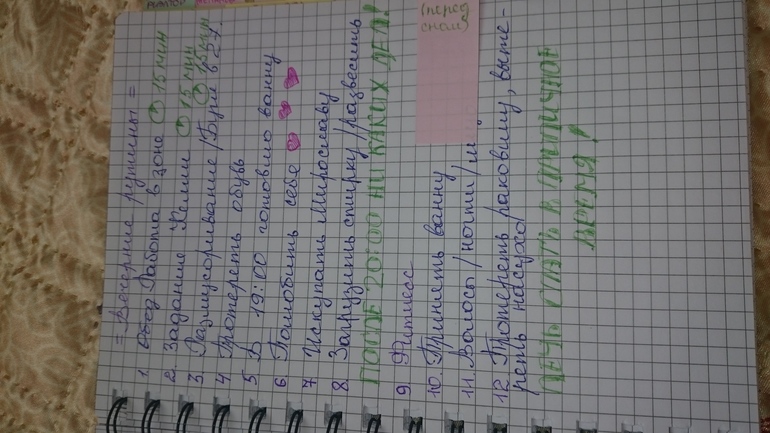 = Вечерние рутины =
1. Обед Работа в зоне 15 мин
2. Задание Келли 15 мин
3. Размусоривание / Буги в 27 15 мин
4 Протереть обувь
5 В 19:00 готовлю ванну
6 Полюбить себя
7 Искупать Мирославу
8. Загрузить стирку / развесить
ПОСЛЕ 20:00 НИ КАКИХ ДЕЛ!
9 Фитнесс
10. Принять ванну
11. Волосы / ногти /
12. Протереть раковину, выте-
реть насухо
ЛЕЧЬ СПАТЬ В ПРИЛИЧНОЕ
ВРЕМЯ!
(перед
сном)